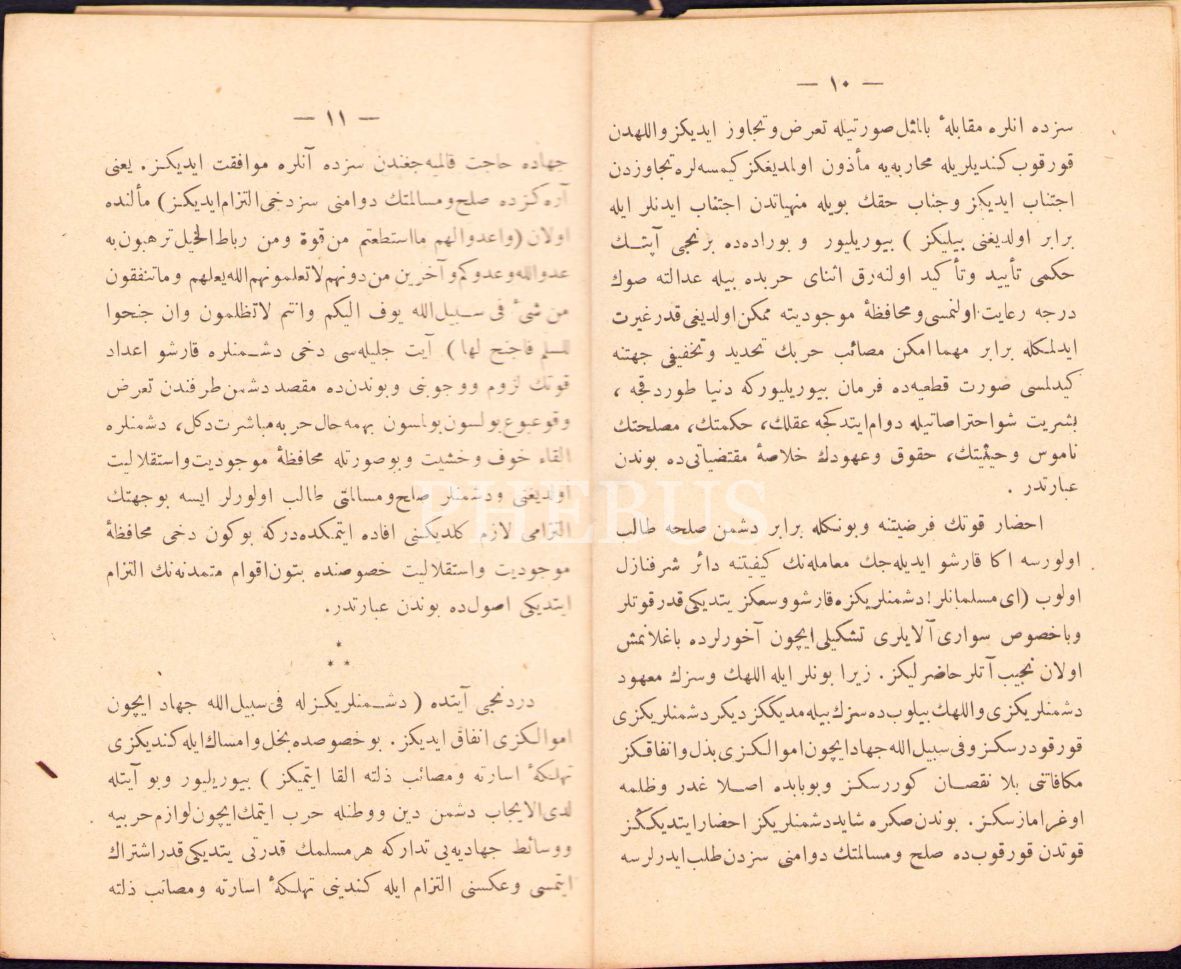 — ١٠ —
سزده انلره مقابلهٔ بالمثل صورتیله تعرض وتجاوز ایدیکز واللهدن
قورقوب کندیلریله محاربه‌یه مأذون اولمدیغکز کیمسه‌لره تجاوزدن
اجتناب ایدیکز وجناب حقك بویله منهیاتدن اجتناب ایدنلر ایله
برابر اولدیغنی بیلیکز ) بیوریلیور و بوراده‌ده برنجی آیتـك
حکمی تأیید وتأکید اولنه‌رق اثنای حربده بیله عدالته صوك
درجه رعایت اولنمسی ومحافظهٔ موجودیته ممکن اولدیغی قدر غیرت
ایدلمکله برابر مهما امکن مصائب حربك تحدید وتخفیفی جهتنه
کیدلمسی صورت قطعیه‌ده فرمان بیوریلیورکه دنیا طوردقجه ،
بشریت شو احتراصاتیله دوام ایتدکجه عقلك، حکمتك، مصلحتك
ناموس وحیثیتك، حقوق وعهودك خلاصهٔ مقتضیاتی‌ده بوندن
عبارتدر .
احضار قوتك فرضیتنه وبونکله برابر دشمن صلحه طالب
اولورسه اکا قارشو ایدیله‌جك معامله‌نك کیفیتنه دائر شرفنازل
اولوب (ای مسلمانلر! دشمنلریکزه قارشو وسعکز یتدیکی قدر قوتلر
وباخصوص سواری آلایلری تشکیلی ایچون آخورلرده باغلانمش
اولان نجیب آتلر حاضرلیکز. زیرا بونلر ایله اللهك وسزك معهود
دشمنلریکزی واللهك بیلوب‌ده سزك بیله‌مدیککز دیکر دشمنلریکزی
قورقودرسکز وفی سبیل‌الله جهاد ایچون اموالکزی بذل وانفاقکز
مکافاتنی بلا نقصـان کوررسکز وبوبابده اصـلا غدر وظلمه
اوغرامازسکز. بوندن صکره شاید دشمنلریکز احضار ایتدیککز
قوتدن قورقوب‌ده صلح ومسالمتك دوامنی سزدن طلب ایدرلرسه
— ١١ —
جهاده حاجت قالمیه‌جغندن سزده آنلره موافقت ایدیکز. یعنی
آره‌کزده صلح ومسالمتك دوامنی سزدخی التزام ایدیکز) مألنده
اولان (واعدوا لهم ما استطعتم من قوة ومن رباط الخیل ترهبون به
عدوالله وعدوکم وآخرین من دونهم لاتعلمونهم الله یعلمهم وماتنفقون
من شیٔ فی سـبیل‌الله یوف الیکم وانتم لاتظلمون وان جنحوا
للسلم فاجنح لها) آیت جلیله‌سی دخی دشـمنلره قارشو اعداد
قوتك لزوم ووجوبنی وبوندن‌ده مقصد دشمن طرفندن تعرض
وقوعبوع بولسون بولمسون بهمه‌حال حربه مباشرت دکل، دشمنلره
القاء خوف وخشیت وبوصورتله محافظهٔ موجودیت واستقلالیت
اولدیغنی ودشمنلر صلح ومسالمتی طالب اولورلر ایسه بوجهتك
التزامی لازم کلدیکنی افاده ایتمکده‌درکه بوکون دخی محافظهٔ
موجودیت واستقلالیت خصوصنده بتون اقوام متمدنه‌نك التزام
ایتدیکی اصول‌ده بوندن عبارتدر.
*
* *
دردنجی آیتده ( دشـمنلریکـزله فی‌سبیل‌الله جهاد ایچون
اموالکزی انفاق ایدیکز. بو خصوصده بخل وامساك ایله کندیکزی
تهلکهٔ اسارته ومصائب ذلته القا ایتمیکز ) بیوریلیور وبو آیتله
لدی‌الایجاب دشمن دین ووطنله حرب ایتمك ایچون لوازم حربیه
ووسائط جهادیه‌یی تدارکه هر مسلمك قدرتی یتدیکی قدر اشتراك
ایتمسی وعکسنی التزام ایله کندینی تهلکهٔ اسارته ومصائب ذلته
PHEBUS